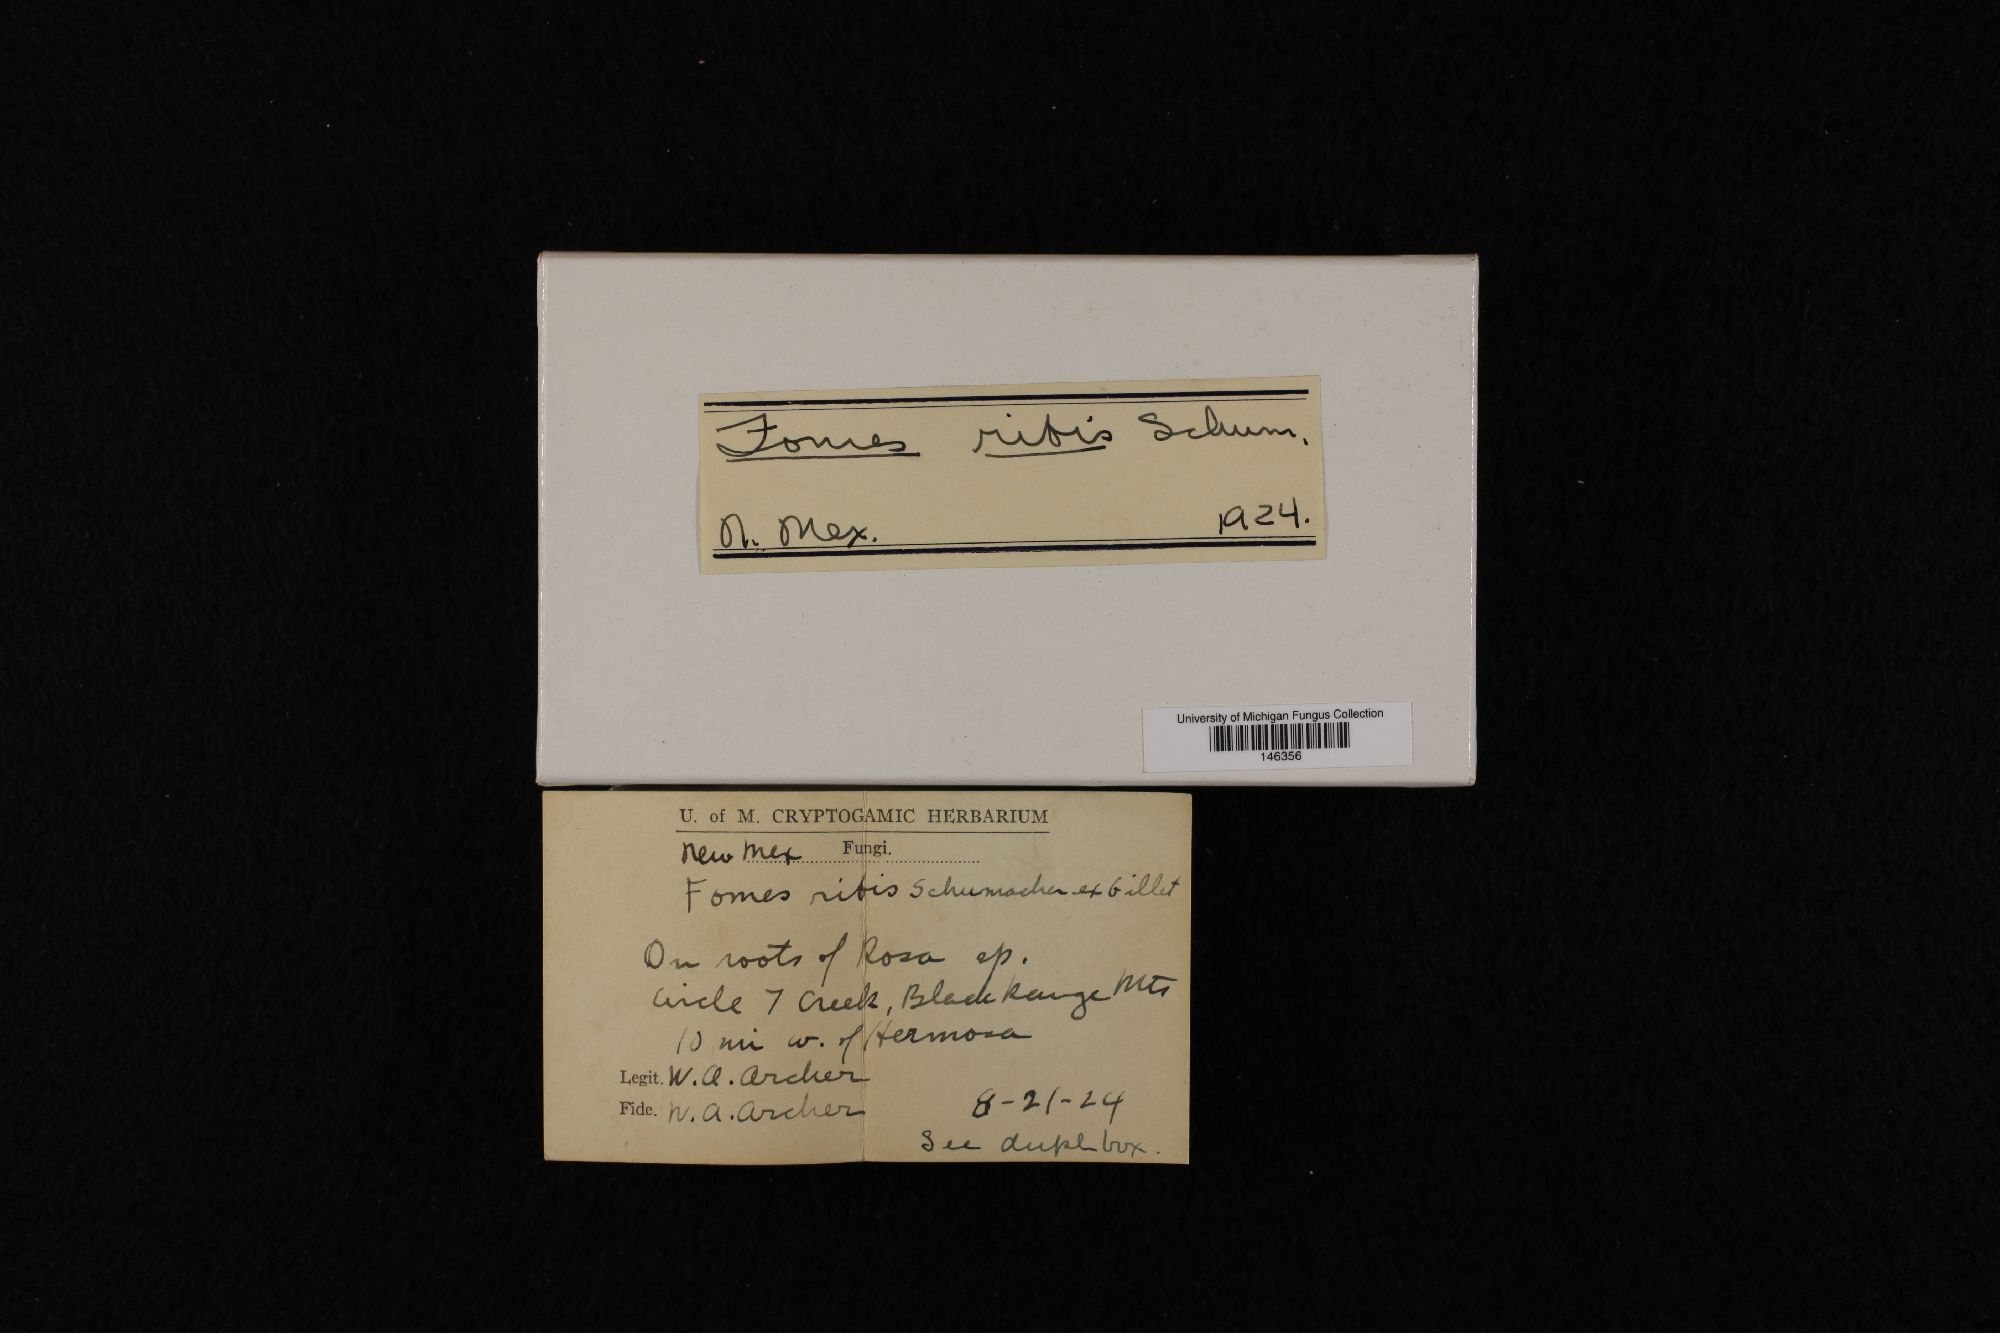 Fomes ribis Schum.
N. Mex. 1924.
University of Michigan Fungus Collection
146356
U. of M. CRYPTOGAMIC HERBARIUM
New Mex Fungi.
Fomes ribis Schumacher ex Gillet
On roots of Rosa sp.
Circle 7 Creek, Black Range Mts
10 mi w. of Hermosa
Legit. W. A. Archer
Fide. W. A. Archer 8-21-24
See dupl box.